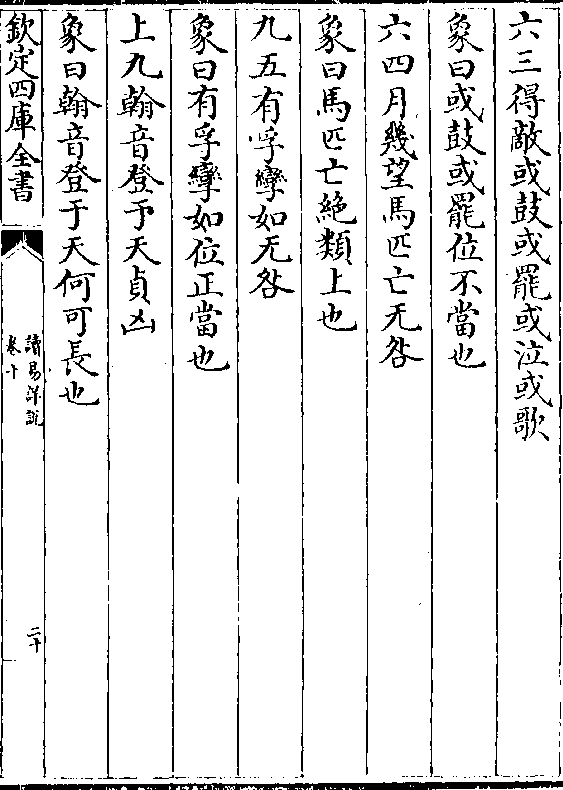 六三得敵或鼓或罷或泣或歌
象曰或鼓或罷位不當也
六四月幾望馬匹亡无咎
象曰馬匹亡絶類上也
九五有孚攣如无咎
象曰有孚攣如位正當也
上九翰音登于天貞凶
象曰翰音登于天何可長也
欽定四庫全書
讀易詳說
卷十
二十